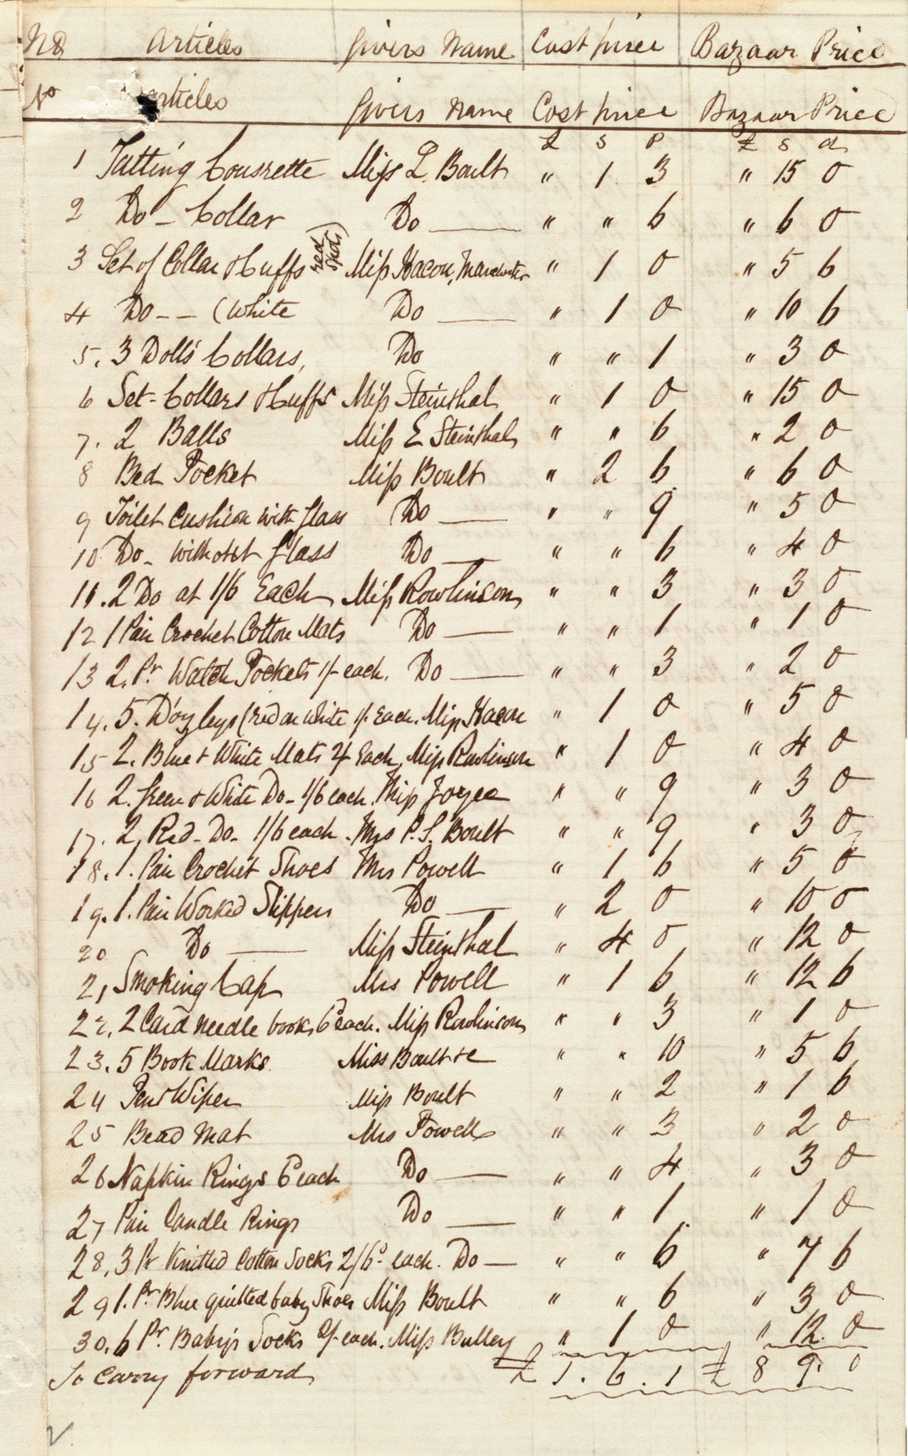 No Articles Givers Name Cost price Bazaar Price
No Articles Givers Name Cost price Bazaar Price
£ s p £ s d
1 Tatting Cousrette Miss L. Boult " 1 3 " 15 0
2 Do - Collar Do " " 6 " 6 0
3 Set of Collar & Cuffs red spots) Miss Hacon, Manchester " 1 0 " 5 6
4 Do - - (White Do " 1 0 " 10 6
5. 3 Doll's Collars, Do " " 1 " 3 0
6 Set - Collars & Cuffs Miss Steinthal " 1 0 " 15 0
7. 2 Balls Miss E Steinthal " " 6 " 2 0
8 Bed Pocket Miss Boult " 2 6 " 6 0
9 Toilet Cushion with Glass Do " " 9 " 5 0
10 Do - without Glass Do " " 6 " 4 0
11. 2 Do at 1/6 Each Miss Rowlinson " " 3 " 3 0
12 1 Pair Crochet Cotton Mats Do " " 1 " 1 0
13 2. Pr Watch Pockets 1/- each. Do " " 3 " 2 0
14. 5. D'oyleys (red on White 1/- Each. Miss Hacon " 1 0 " 5 0
15 2. Blue & White Mats 2/- Each, Miss Rowlinson " 1 0 " 4 0
16 2. Green & White Do - 1/6 each. Miss Joyce " " 9 " 3 0
17. 2, Red - Do - 1/6 each. Mrs P. S. Boult " " 9 " 3 0
18. 1. Pair Crochet Shoes Mrs Powell " 1 6 " 5 0
19. 1. Pair Worked Slippers Do " 2 0 " 10 0
20 Do Miss Steinthal " 4 0 " 12 0
21 Smoking Cap Mrs Powell " 1 6 " 12 6
22, 2 Card needle books 6 each. Miss Rowlinson " " 3 " 1 0
23. 5 Book Marks Miss Boult &c " " 10 " 5 6
24 Pen Wiper Miss Boult " " 2 " 1 6
25 Bead Mat Mrs Powell " " 3 " 2 0
26 Napkin Rings 6 each Do " " 4 " 3 0
27 Pair Candle Rings Do " " 1 " 1 0
28, 3 Pr Knitted Cotton Socks 2/6d each. Do " " 6 " 7 6
29 1. Pr Blue quilted baby Shoes Miss Boult " " 6 " 3 0
30. 6 Pr. Baby's Socks 2/- each. Miss Bulley " 1 0 " 12 0
To carry forward £ 1. 6. 1 £ 8 9 0